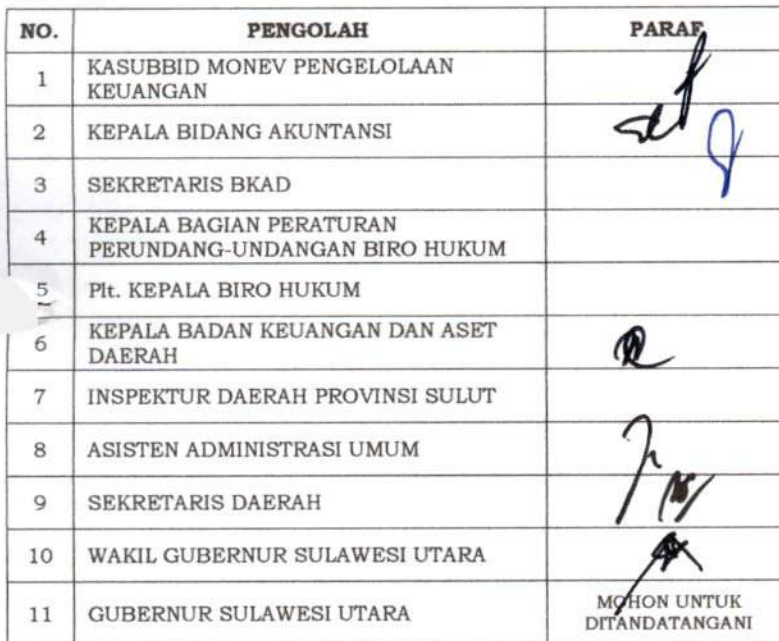 NO. PENGOLAH PARAF
1 KASUBBID MONEV PENGELOLAAN
KEUANGAN
2 KEPALA BIDANG AKUNTANSI
3 SEKRETARIS BKAD
4 KEPALA BAGIAN PERATURAN
PERUNDANG-UNDANGAN BIRO HUKUM
5 Plt. KEPALA BIRO HUKUM
6 KEPALA BADAN KEUANGAN DAN ASET
DAERAH
7 INSPEKTUR DAERAH PROVINSI SULUT
8 ASISTEN ADMINISTRASI UMUM
9 SEKRETARIS DAERAH
10 WAKIL GUBERNUR SULAWESI UTARA
11 GUBERNUR SULAWESI UTARA MOHON UNTUK
DITANDATANGANI